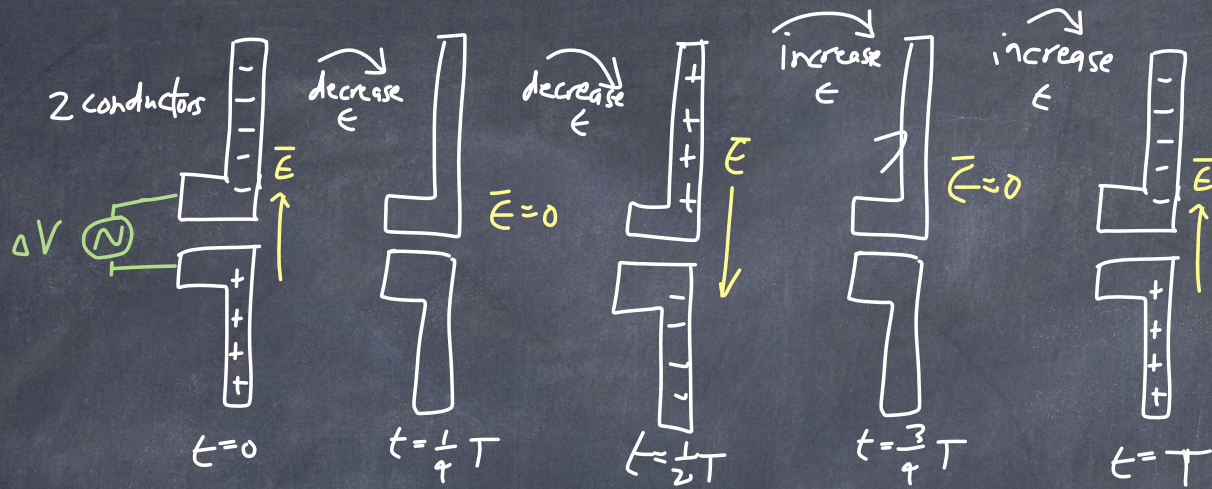 2 conductors
ΔV
- - - - -
+ + + +
E̅
t=0
decrease
E
E̅=0
t=1/4 T
decrease
E
+ + + +
- - - -
E̅
t=1/2 T
increase
E
E̅=0
t=3/4 T
increase
E
- - - - -
+ + + +
E̅
t=T